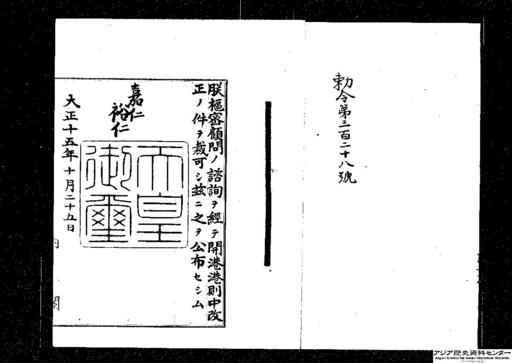 勅令第三百二十八號
朕樞密顧問ノ諮詢ヲ經テ開港港則中改
正ノ件ヲ裁可シ玆ニ之ヲ公布セシム
嘉仁
裕仁
天皇
御璽
大正十五年十月二十五日
内閣
アジア歴史資料センター
Japan Center for Asian Historical Records